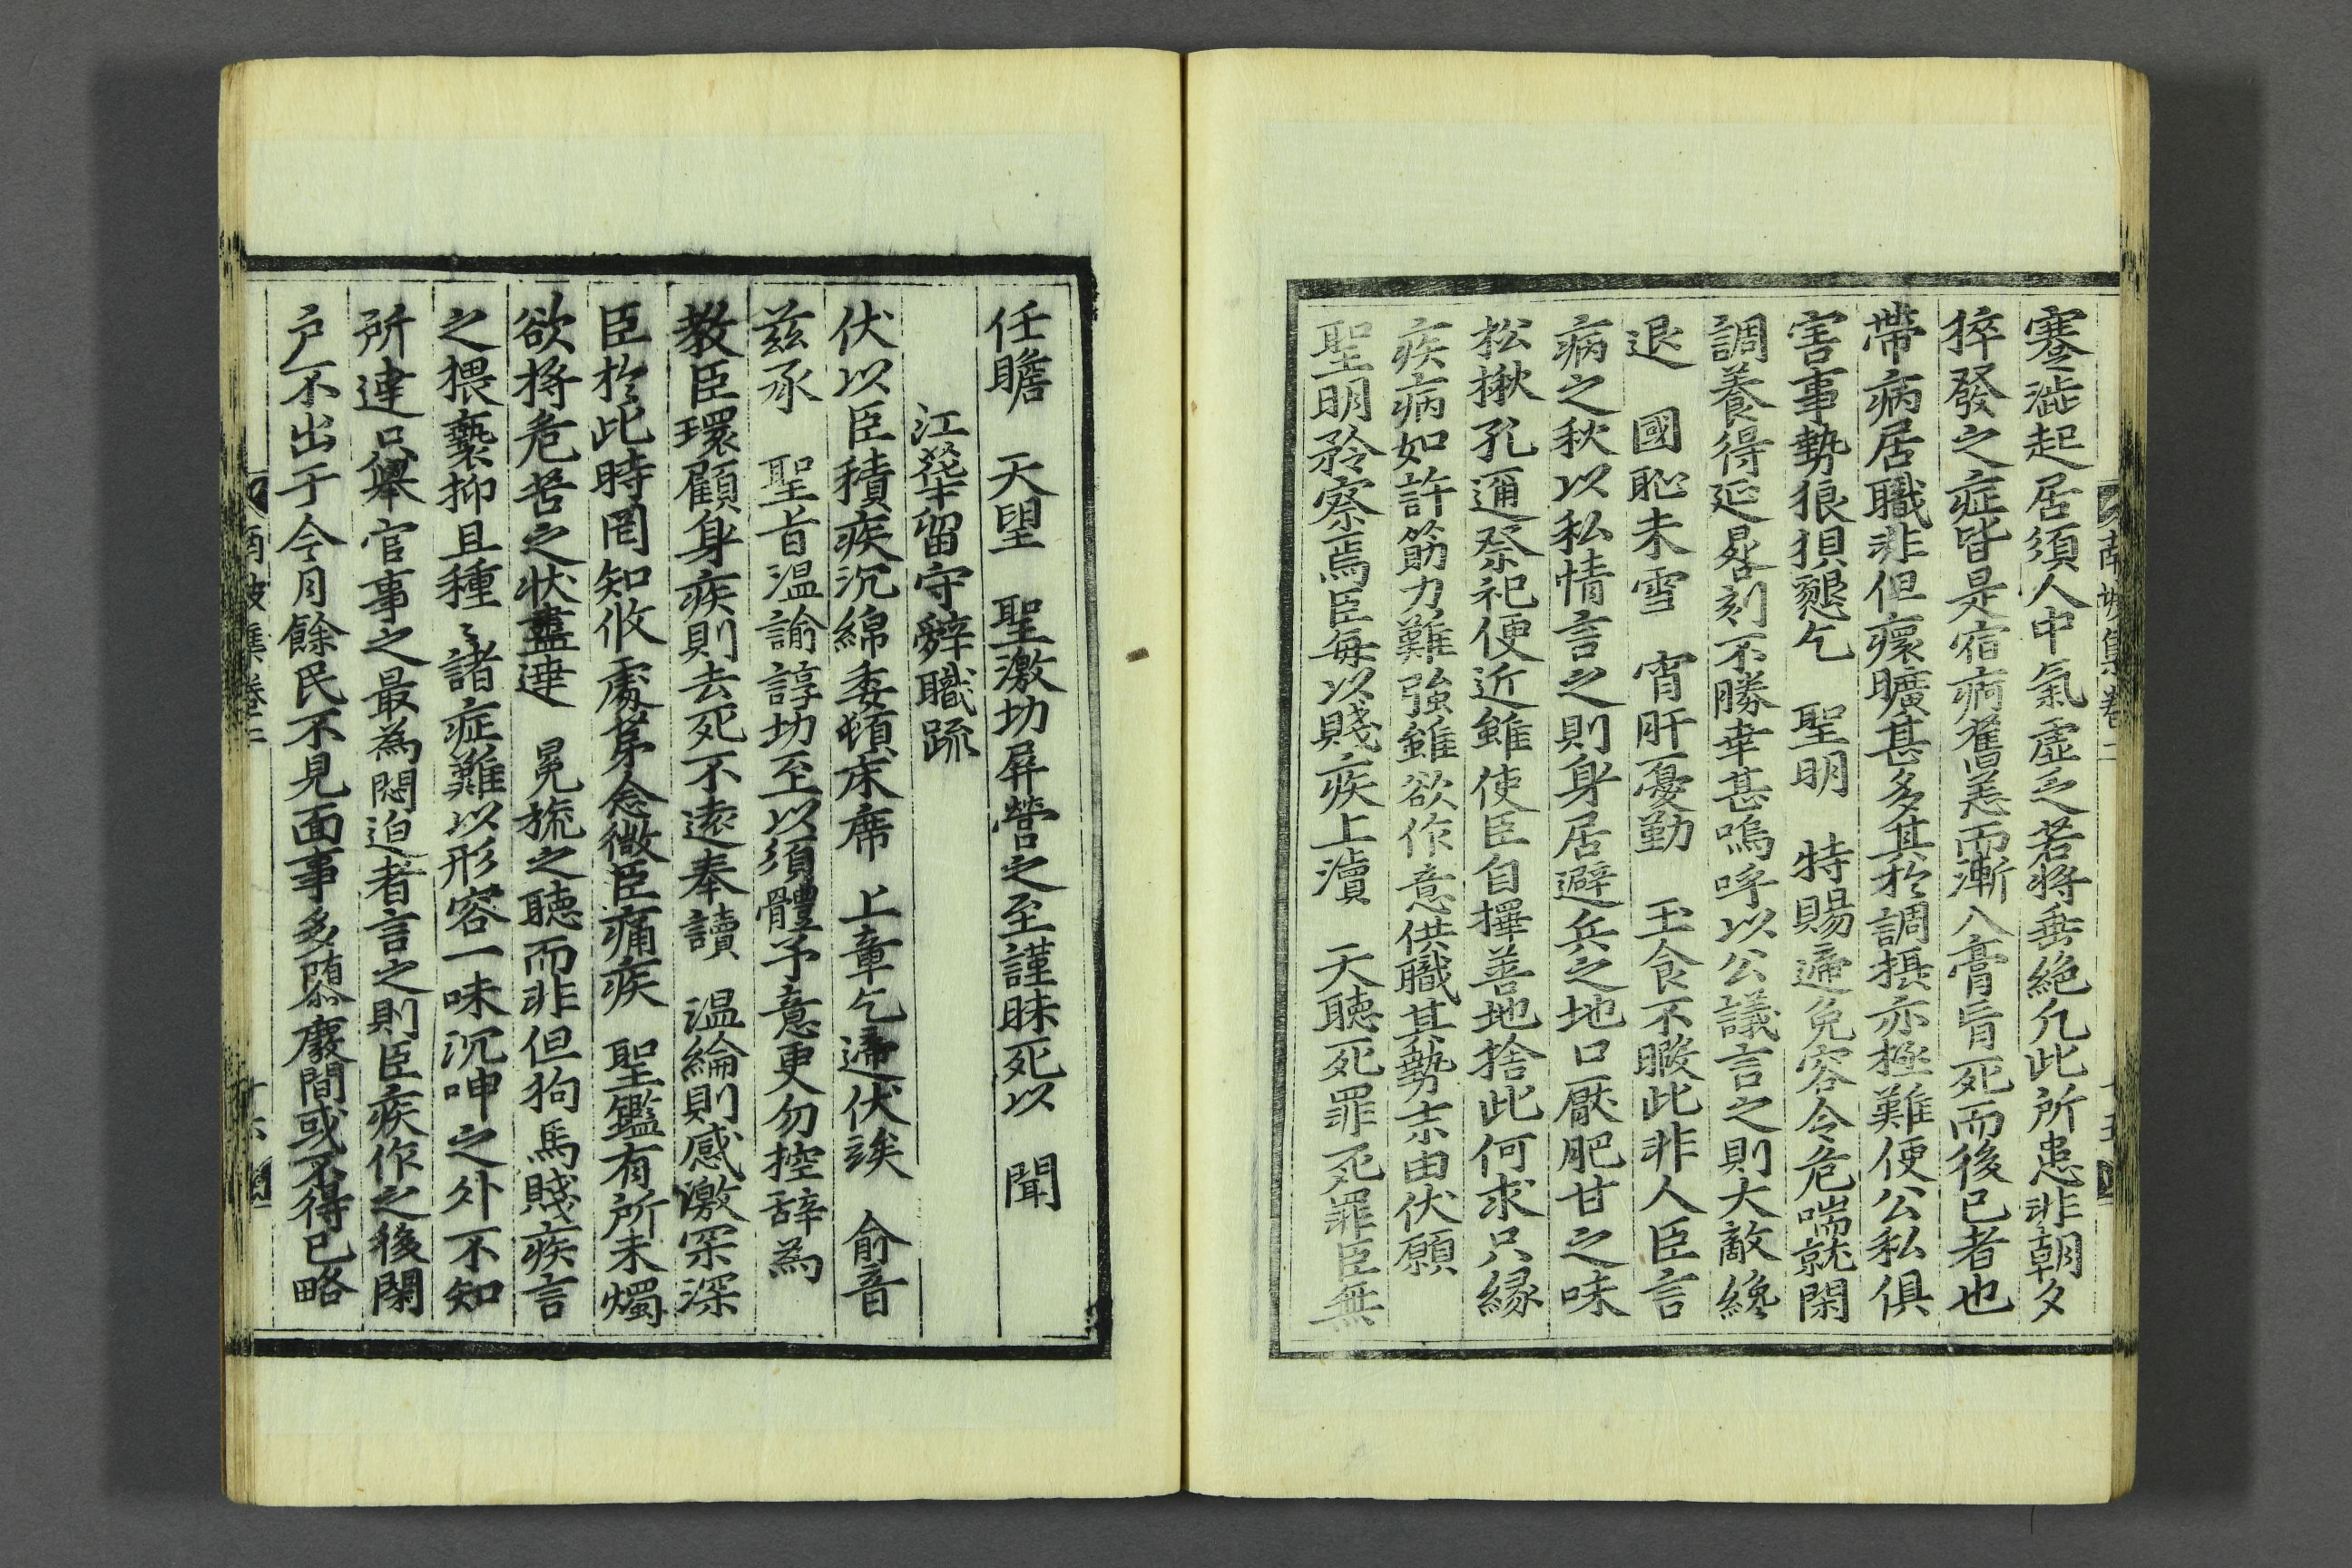 南坡集卷二
蹇澁起居須人中氣虛乏若將垂絶凡此所患非朝夕
猝發之症皆是宿痾舊恙而漸入膏肓死而後已者也
帶病居職非但瘝曠甚多其於調攝亦極難便公私俱
害事勢狼狽懇乞 聖明 特賜遞免容令危喘就閑
調養得延晷刻不勝幸甚嗚呼以公議言之則大敵纔
退 國恥未雪 宵肝憂勤 玉食不暇此非人臣言
病之秋以私情言之則身居避兵之地口厭肥甘之味
松楸孔邇祭祀便近雖使臣自擇善地捨此何求只緣
疾病如許筋力難強雖欲作意供職其勢末由伏願
聖明矜察焉臣每以賤疾上瀆 天聽死罪死罪臣無
任瞻 天望 聖激切屛營之至謹昧死以 聞
江華留守辭職疏
伏以臣積疾沉綿委頓床席 上章乞遞伏俟 俞音
玆承 聖旨溫諭諄切至以須體予意更勿控辭為
敎臣環顧身疾則去死不遠奉讀 溫綸則感激深深
臣於此時罔知攸處第念微臣痛疾 聖鑑有所未燭
欲將危苦之狀盡達 冕旒之聽而非但狗馬賤疾言
之猥褻抑且種〻諸症難以形容一味沉呻之外不知
所達只擧官事之最為悶迫者言之則臣疾作之後閉
户不出于今月餘民不見面事多隳廢間或不得已略
南坡集卷二 十六